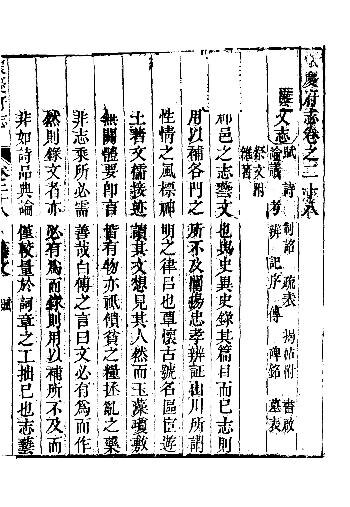 慶府志卷之二十八
藝文志 賦 詩 制詔 疏表 揭帖附 書啟
論議 考 辨 記 序 傳 碑銘 墓表
祭文附
雜著
郡邑之志藝文也與史異史錄其篇目而已志則
用以補各門之所不及闡揚忠孝辨証山川所謂
性情之風標神明之律呂也覃懷古號名區宦遊
土著文儒接迹讀其文想見其人然而玉藻瓊敷
無關體要即言皆有物亦祇債貧之糧拯亂之藥
非志乘所必需善哉白傅之言曰文必有為而作
然則錄文者亦必有為而錄則用以補所不及而
非如詩品典論僅較量於詞章之工拙已也志藝
慶府志 卷二十八 藝文 賦